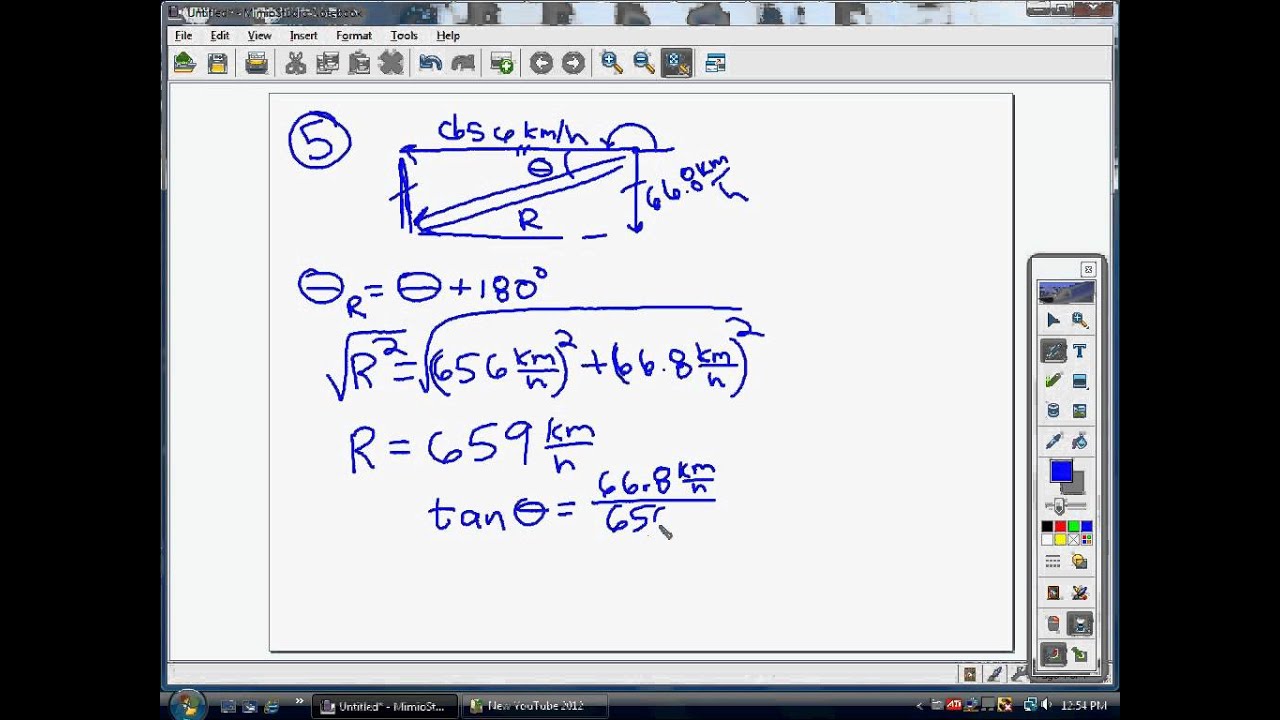 Untitled* - MimioStudio Notebook
File Edit View Insert Format Tools Help
5
656 km/h
θ
66.8 km/h
R
θR = θ + 180°
√R² = √(656 km/h)² + (66.8 km/h)²
R = 659 km/h
66.8 km/h
tan θ =
65
T
Untitled* - MimioSt...
New YouTube 2012
12:54 PM